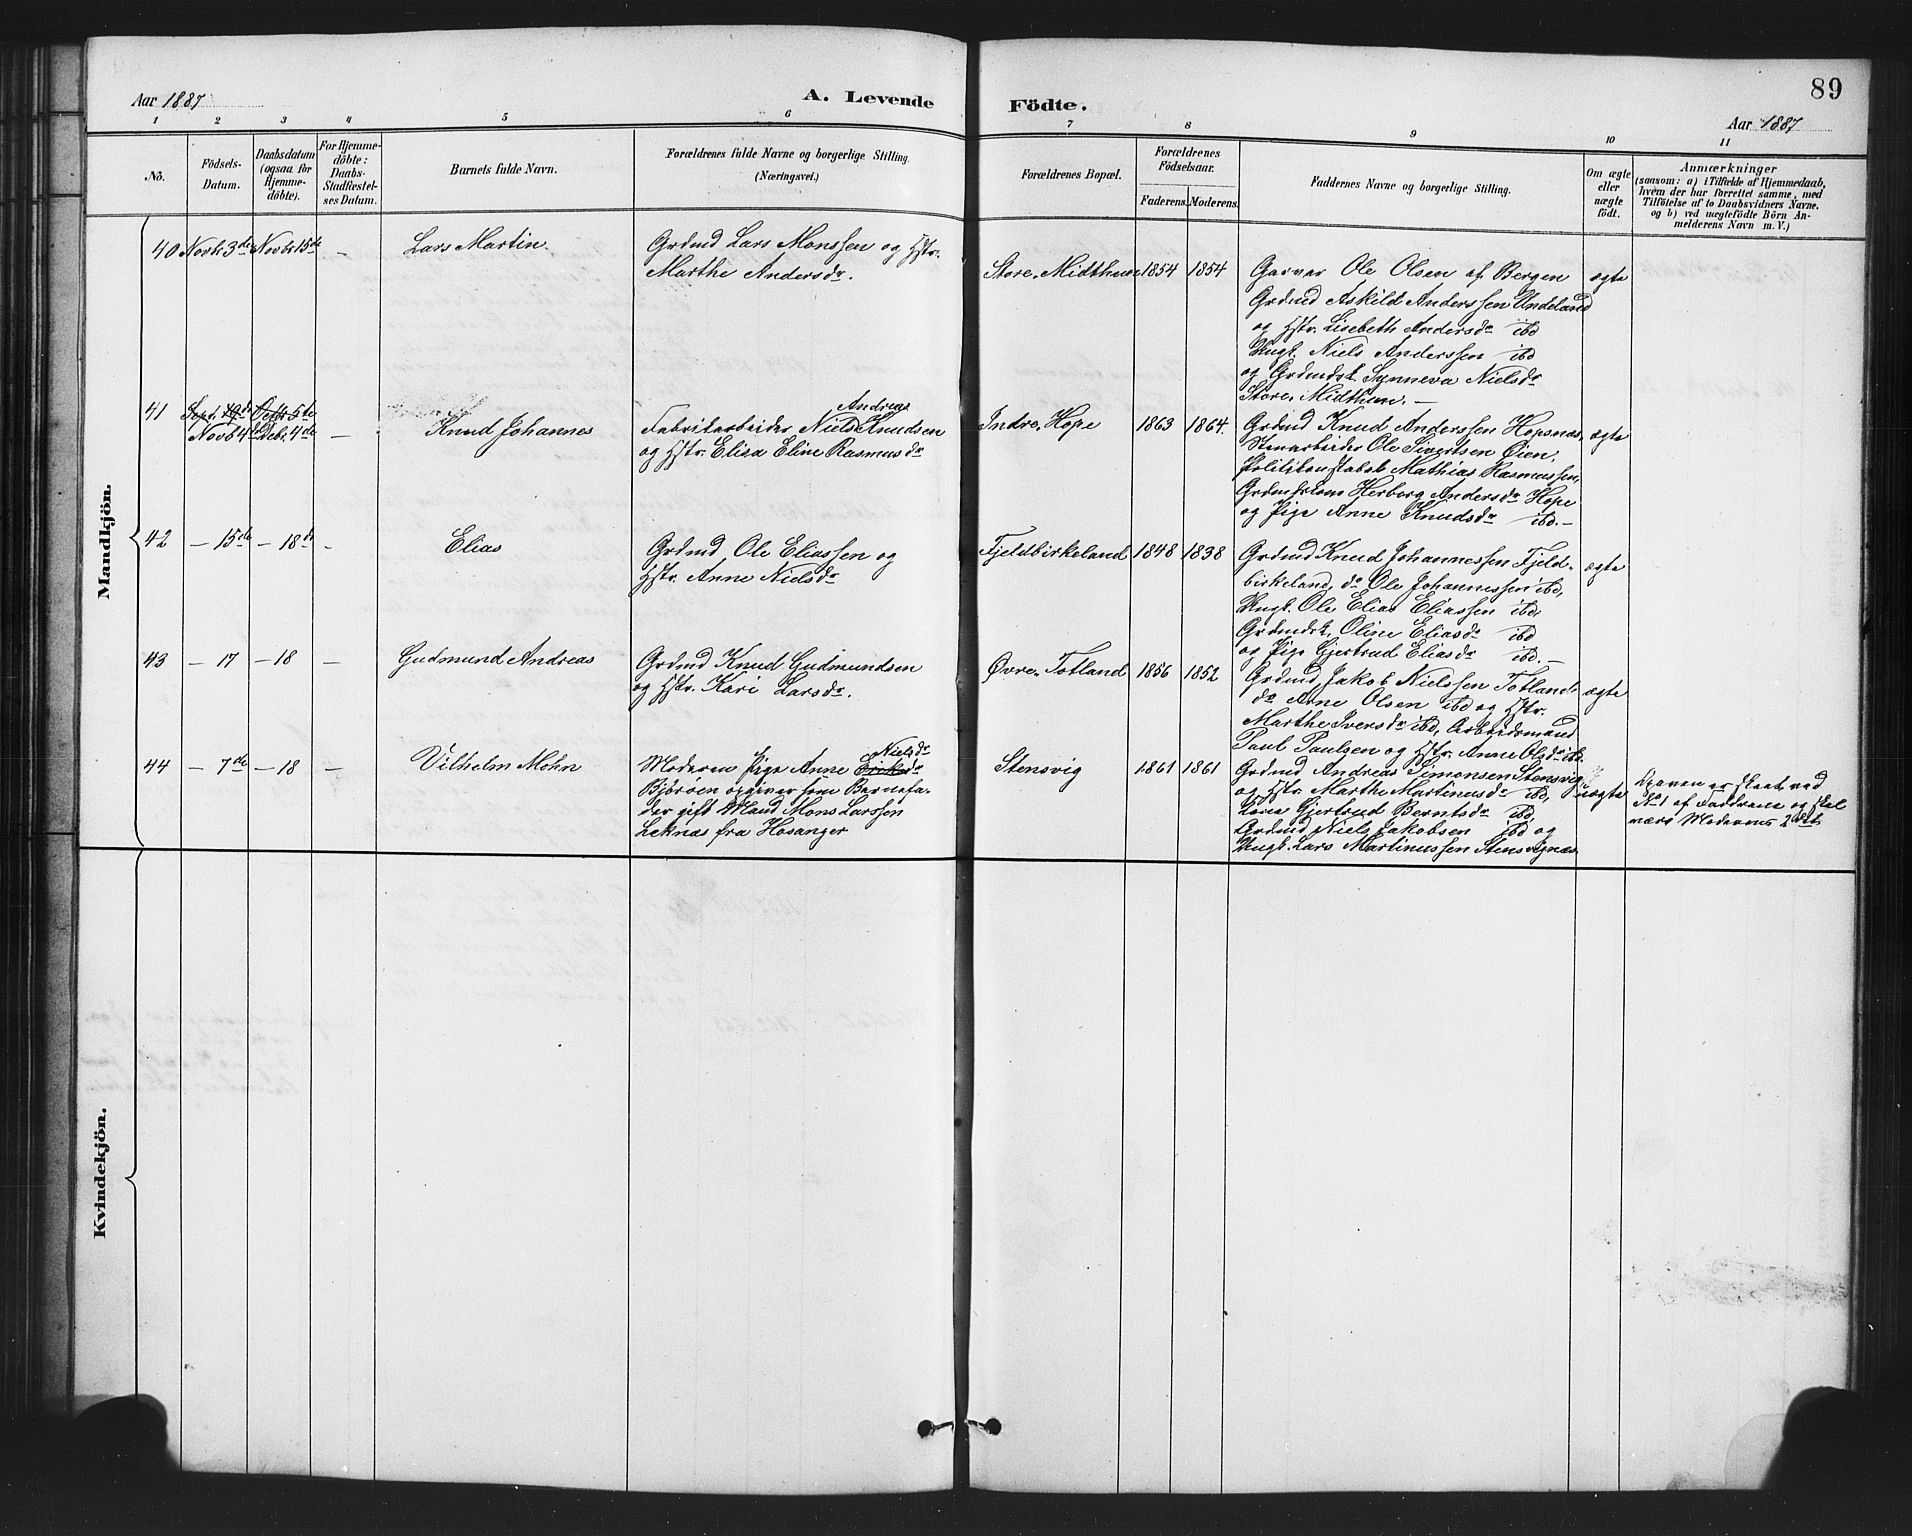 Aar 1887
A. Levende
Födte.
89
Aar 1887
1
2
3
4
5
6
7
8
9
10
11
No.
Födsels-
Datum.
Daabsdatum
(ogsaa for
Hjemme-
döbte).
For Hjemme-
döbte:
Daabs-
Stadfæstel-
ses Datum.
Barnets fulde Navn.
Forældrenes fulde Navne og borgerlige Stilling.
(Næringsvei.)
Forældrenes Bopæl.
Forældrenes
Födselsaar.
Faderens.
Moderens.
Faddernes Navne og borgerlige Stilling.
Om ægte
eller
uægte
födt.
Anmærkninger
(saasom: a) i Tilfælde af Hjemmedaab,
hvem der har forrettet samme, med
Tilföielse af to Daabsvidners Navne.
og b) ved uægtefödte Börn An-
melderens Navn m. V.)
Mandkjön.
40 Novb 3de Novbr 15de — Lars Martin. Grdmd Lars Monssen og Hstr. Marthe Andersdr. Store Midthun 1854 1854
Garver Ole Olsen af Bergen ægte
Grdmd Askild Anderssen Undeland
og Hstr. Lisebeth Andersdr ibd
Ungk. Niels Anderssen ibd
og Grdmdsk. Synneva Nielsdr
Store Midthun. —
41 Sept. 19de Octb 5te
Novb 4de Debr. 4de — Knud Johannes
Andreas
Fabrikarbeider Niels Knudsen
og Hstr. Elisa Eline Rasmusdr
Indre Hope 1863 1864.
Grdmd Knud Anderssen Hopsnæs, ægte
Stenarbeider Ole Sivertsen Öien,
Politikonstabel Mathias Rasmussen,
Herborg Andersdr Hope
og Pige Anne Knudsdr ibd. —
42 — 15de — 18de - Elias
Grdmd Ole Eliassen og
Hstr. Anne Nielsdr
Fjeldbirkeland 1848 1838
Grdmd Knud Johannessen Fjeld- ægte
birkeland, do Ole Johannessen ibd,
Ungk. Ole Elias Eliassen ibd,
Grdmdsk. Oline Eliasdr ibd
og Pige Gjertrud Eliasdr ibd. —
43 — 17 — 18 — Gudmund Andreas
Grdmd Knud Gudmundsen
og Hstr. Kari Larsdr.
Øvre Totland 1856 1852
Grdmd Jakob Nielssen Totland, ægte
do Arne Olsen ibd og Hstr.
Marthe Iversdr ibd, Arbeidsmand
Paul Paulsen og Hstr. Anne Olsdr ibd.
44 — 7de — 18 — Vilhelm Mohn
Nielsdr
Moderen Pige Anne Eriksdr
Björoen opgiver som Barnefa-
der gift Mand Mons Larssen
Leknæs fra Hosanger
Stensvig 1861 1861
Grdmd Andreas Simonsen Stensvig uægte
og Hstr. Marthe Martinusdr ibd,
Gjertrud Berntsdr ibd,
Grdmd Niels Jakobsen ibd og
Ungk. Lars Martinussen Stensvignæs.
Opgaven er skeet ved
No 1 af Fadderne og skal
være Moderens 2det
Kvindekjön.